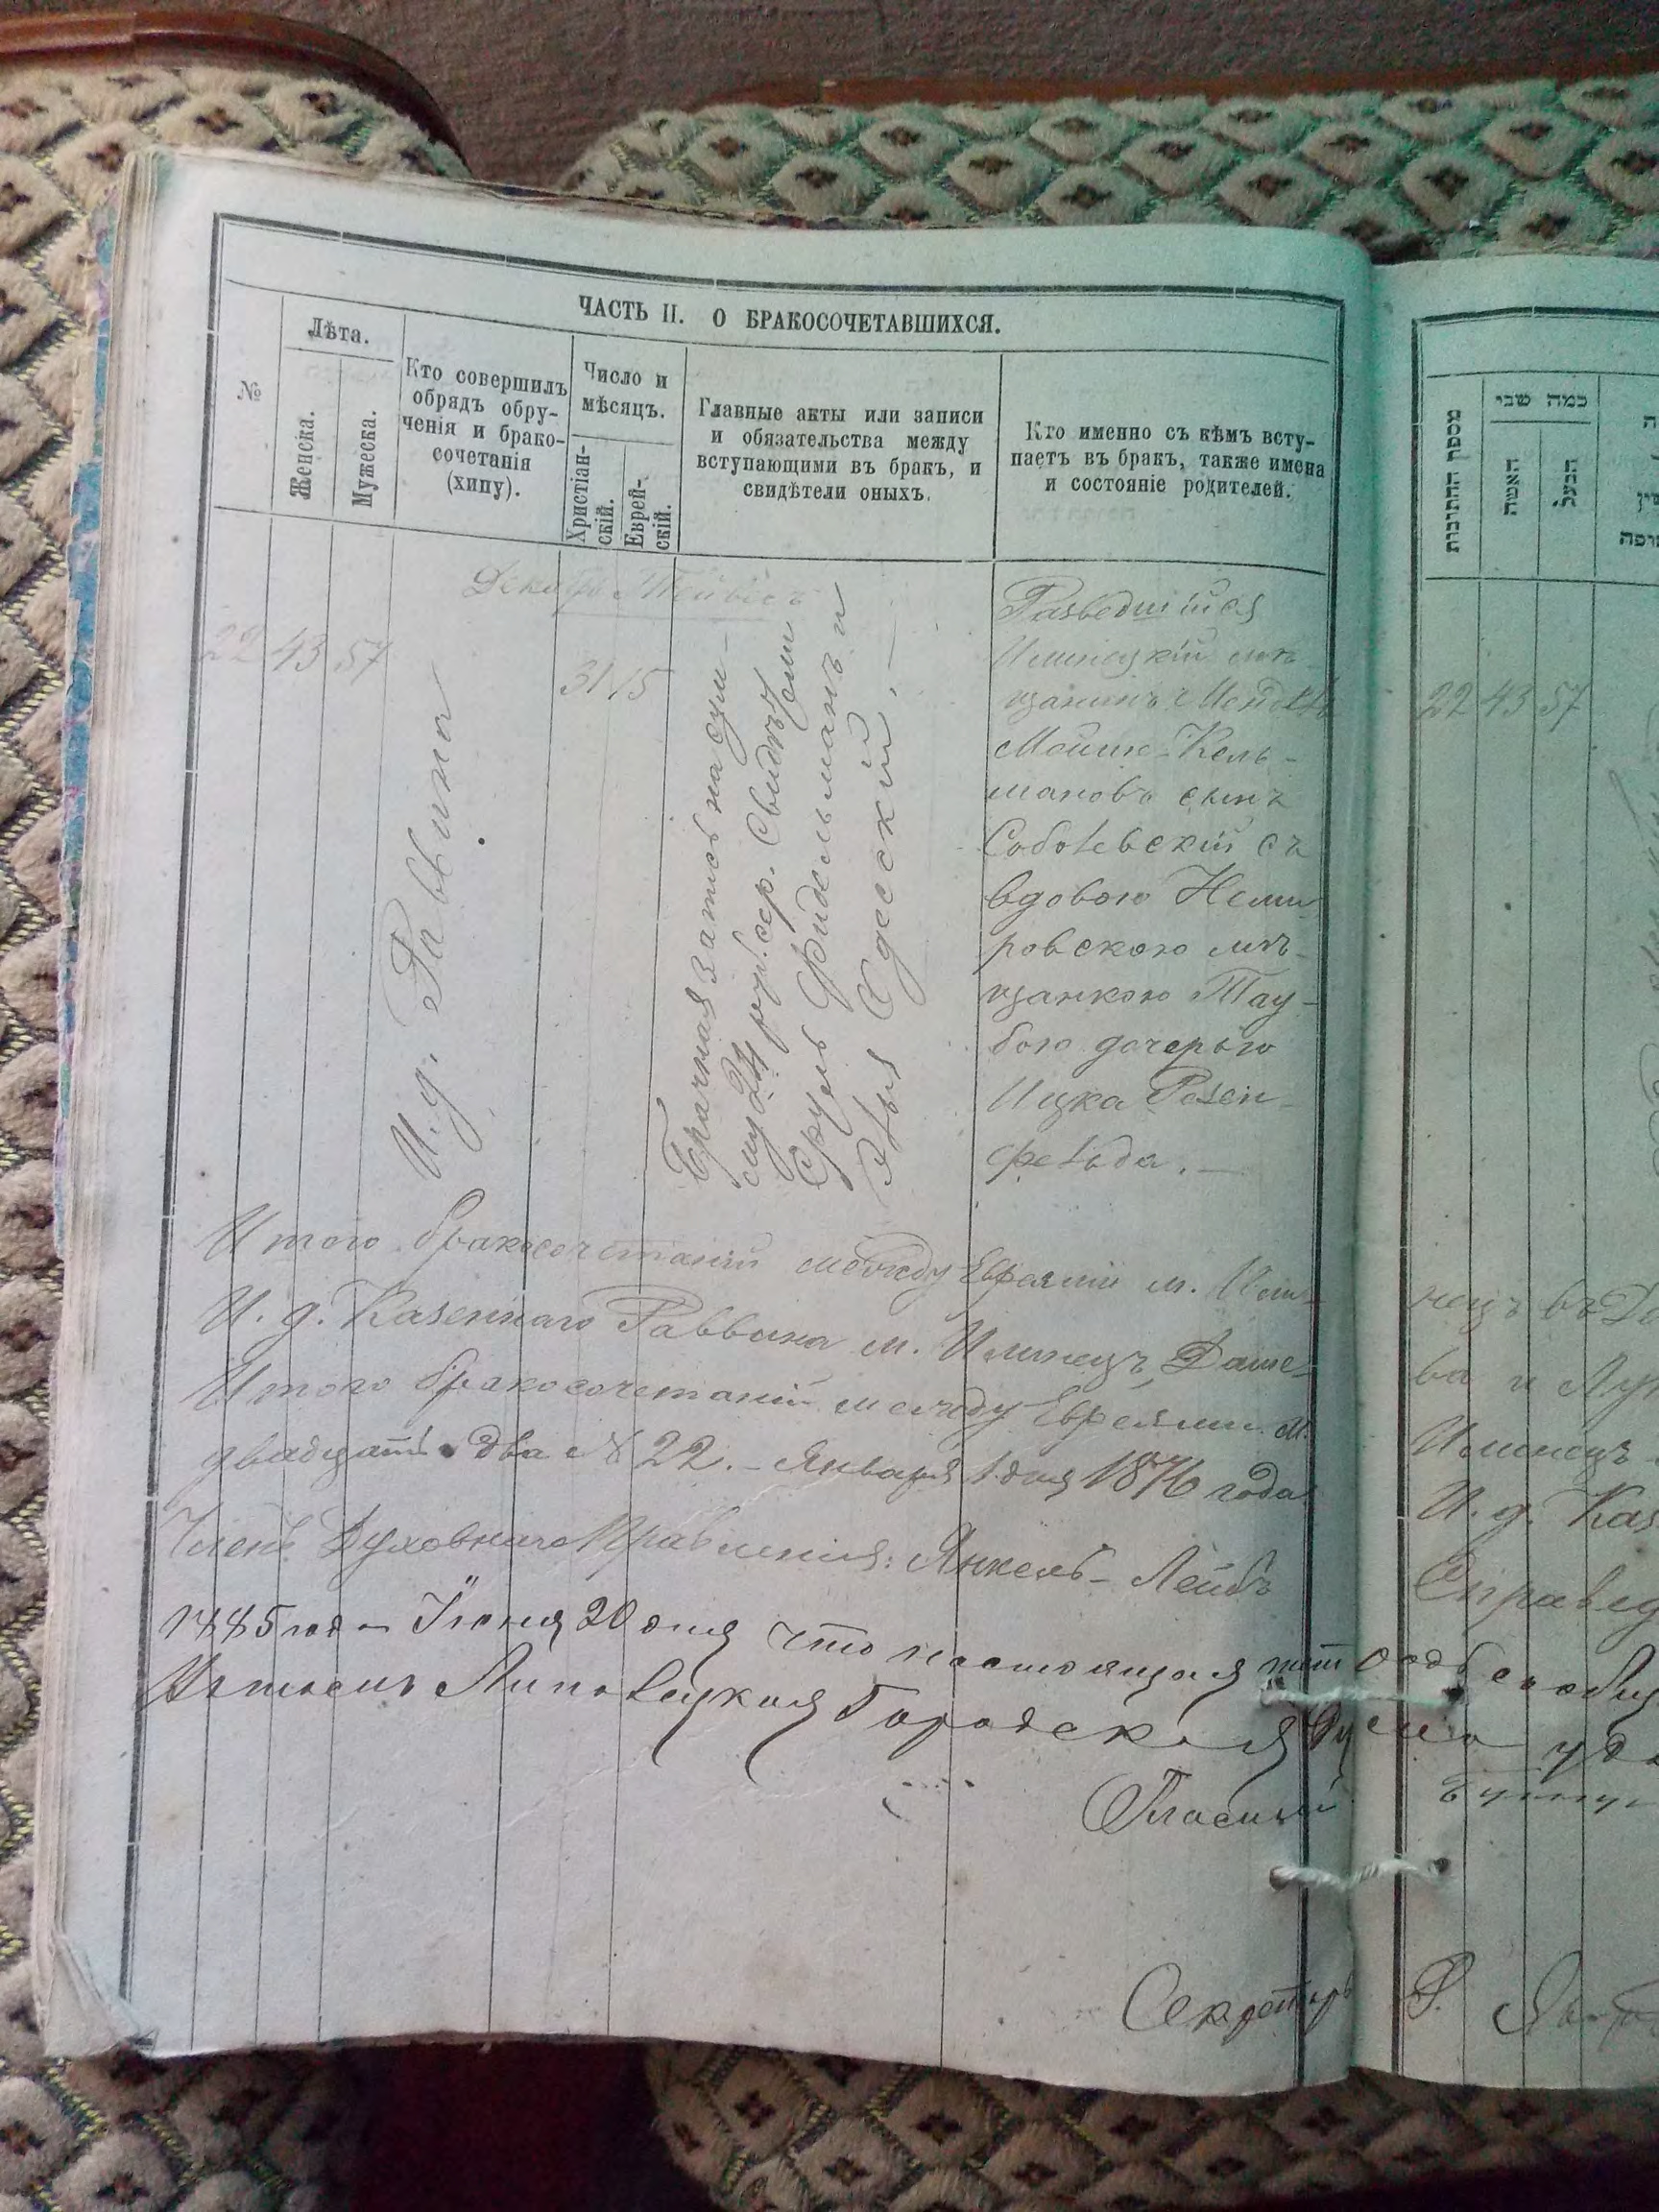 ЧАСТЬ II. О БРАКОСОЧЕТАВШИХСЯ.
№
Лѣта.
Женска.
Мужеска.
Кто совершилъ
обрядъ обру-
ченія и брако-
сочетанія
(хипу).
Число и
мѣсяцъ.
Христіан-
скій.
Еврей-
скій.
Главные акты или записи
и обязательства между
вступающими въ бракъ, и
свидѣтели оныхъ.
Кто именно съ кѣмъ всту-
паетъ въ бракъ, также имена
и состояніе родителей.
Декабрь Тейвесъ
22 43 57
31 15
И. д. Раввина
Брачная запись на сум-
му 24 руб. сер. Свидѣтели
Сруль Фидельманъ и
Одесскій. —
Разведшійся
Илинецкій мѣ-
щанинъ Мендель
Мошко-Кель-
мановъ сынъ
Соболевскій съ
вдовою Неми-
ровскою мѣ-
щанкою Тау-
бою дочерью
Ицка Розен-
фельда. —
Итого бракосочетаній между Евреями м. Или-
И. д. Казеннаго Раввина м. Илинецъ, Даше-
Итого бракосочетаній между Евреями м.
двадцать два № 22. — Января 1 дня 1876 года
Членъ Духовнаго Правленія: Янкель-Лейбъ
1885 года Іюня 20 дня что настоящая
Липовецкая Городская Дума
Гласный
Секретарь
מספר החתונות
כמה שני
האשה
הבעל
22 43 57
нецъ въ
ва и
Илинецъ
И. д. Каз